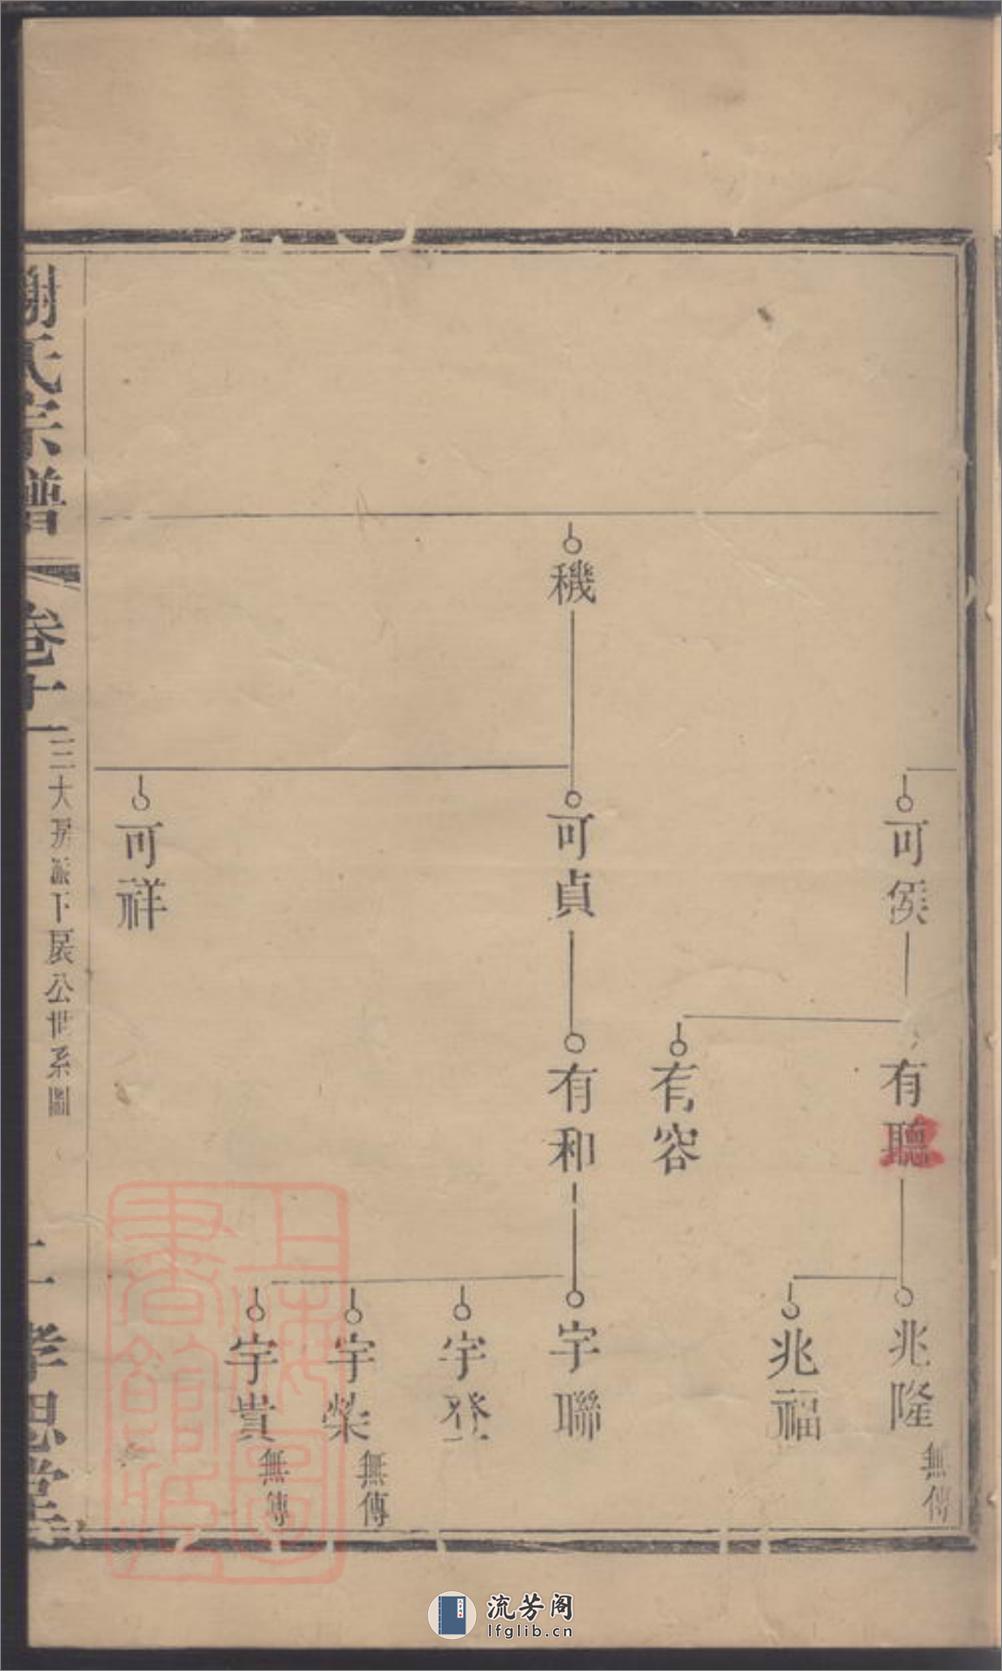 機
可侯
可貞
可祥
有聽
有容
有和
兆隆
無傳
兆福
宇聯
宇登
宇榮
無傳
宇貴
無傳
謝氏宗譜
卷十一
三大房派下展公世系圖
二
孝思堂
上海圖書館藏
流芳阁
lfglib.cn